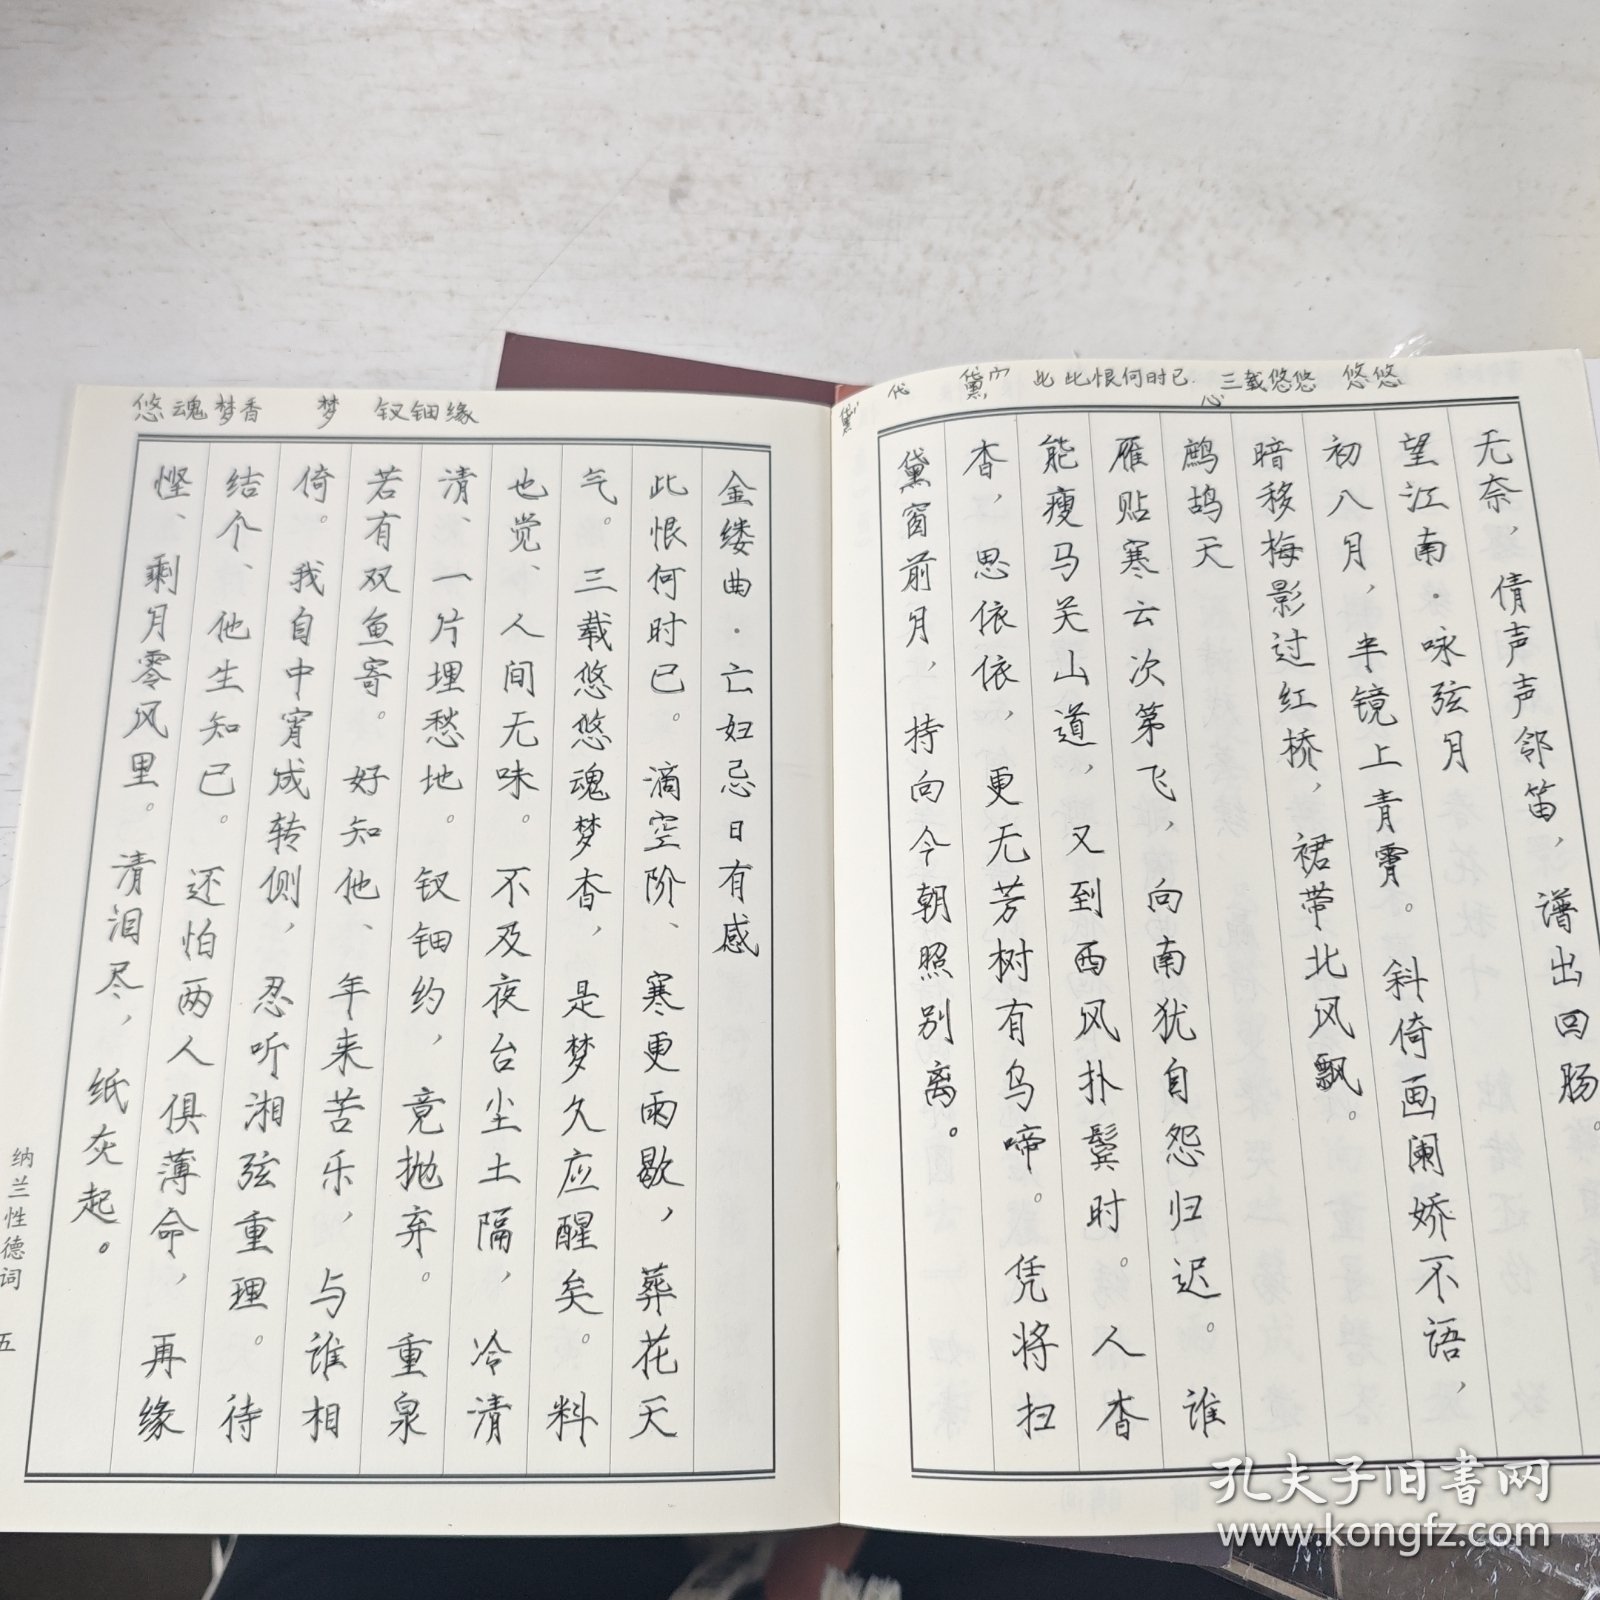 代 黛 此此恨何时已. 三载悠悠 悠悠
心
黛
无奈，倩声声邻笛，谱出回肠。
望江南·咏弦月
初八月，半镜上青霄。斜倚画阑娇不语，
暗移梅影过红桥，裙带北风飘。
鹧鸪天
雁贴寒云次第飞，向南犹自怨归迟。谁
能瘦马关山道，又到西风扑鬓时。人杳
杳，思依依，更无芳树有乌啼。凭将扫
黛窗前月，持向今朝照别离。
悠魂梦香 梦 钗钿缘
金缕曲·亡妇忌日有感
此恨何时已。滴空阶、寒更雨歇，葬花天
气。三载悠悠魂梦杳，是梦久应醒矣。料
也觉、人间无味。不及夜台尘土隔，冷清
清、一片埋愁地。钗钿约，竟抛弃。重泉
若有双鱼寄。好知他、年来苦乐，与谁相
倚。我自中宵成转侧，忍听湘弦重理。待
结个、他生知己。还怕两人俱薄命，再缘
悭、剩月零风里。清泪尽，纸灰起。
纳兰性德词 五
孔夫子旧书网
www.kongfz.com